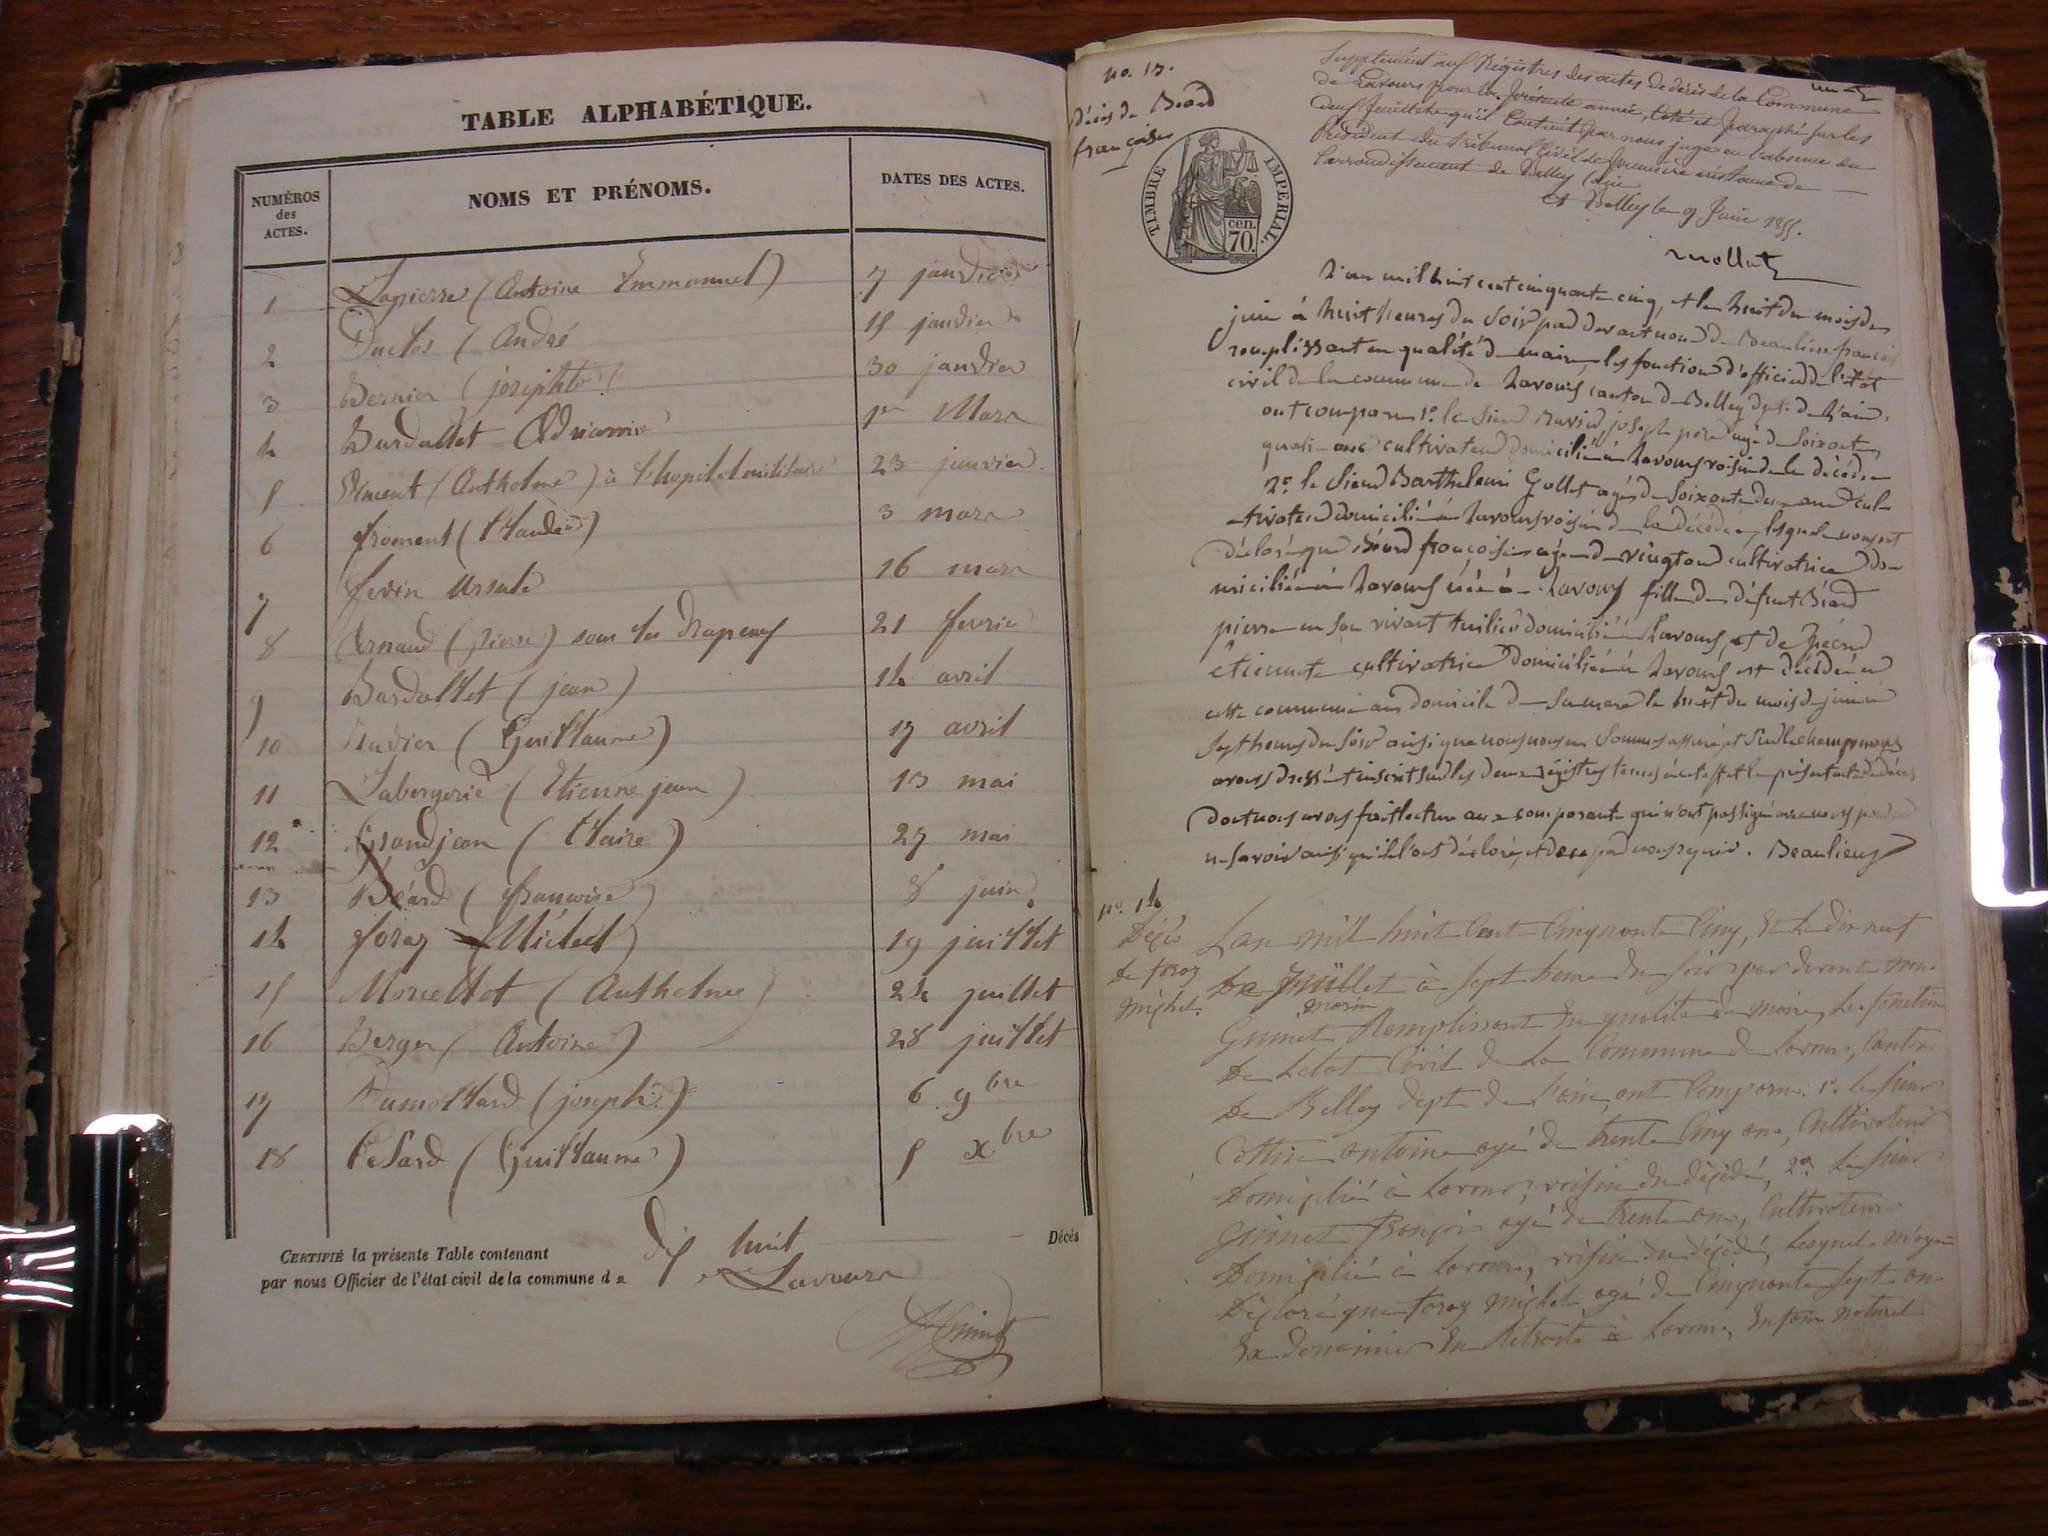 TABLE ALPHABÉTIQUE.
NUMÉROS des ACTES.
NOMS ET PRÉNOMS.
DATES DES ACTES.
1 Lapierre (Antoine Emmanuel) 7 janvier
2 Duclos (André 15 janvier
3 Bernier (josephte) 30 janvier
4 Bardallet 1er Mars
5 (Anthelme) à l'hopital militaire 23 janvier
6 froment (Claude) 3 mars
7 fevin Ursule 16 mars
8 Arnaud (pierre) sous les Drapeaux 21 fevrie
9 Bardallet (jean) 14 avril
10 (Guillaume) 17 avril
11 Labergerie (Etienne jean) 13 mai
12 Grandjean (Claire) 27 mai
13 Béard (françoise) 8 juin
14 foray (Michel) 19 juillet
15 Morcellet (Anthelme) 24 juillet
16 Berger (Antoine) 28 juillet
17 Dumollard (joseph) 6 9bre
18 Pelard (Guillaume) 5 xbre
CERTIFIÉ la présente Table contenant dix huit Décès
par nous Officier de l'état civil de la commune de Lavours
no. 13.
Décès de Béard
françoise
TIMBRE IMPERIAL.
cen. 70.
Supplément aux Régistres des actes de décès de la Commune
de Lavours pour la présente année, Coté et paraphé sur les
deux feuillets qu'il Contient par nous juge en l'absence du
Président du Tribunal Civil de première instance de
l'arrondissement de Belley (ain
A Belley le 9 Juin 1855.
Mollat
L'an mil huit cent cinquante cinq, et le huit du mois de
juin à huit heures du soir par devant nous De Beaulieu françois
remplissant en qualité de maire, les fonction d'officier de l'état
civil de la commune de Lavours canton de Belley dpt. de l'ain,
ont comparu 1o. le sieur joseph pere agé de soixante
ans cultivateur domicilié à Lavours voisin de la décédée
2o. le sieur Barthelemi Gollet agé de soixante deux ans cul-
tivateur domicilié à Lavours voisin de la décédée, lesquels nous ont
déclaré que Béard françoise agée de vingt ans cultivatrice do-
miciliée à Lavours née à Lavours fille de défunt Béard
pierre en son vivant tuilier domicilié à Lavours et de
étiennete cultivatrice domiciliée à Lavours est décédée en
cette commune au domicile de sa mere le huit du mois de juin à
sept heures du soir ainsi que nous nous en sommes assuré et sur le champ nous
avons dressé et inscrit sur les deux régistres tenus à cet effet le présent acte de décès
dont nous avons fait lecture aux comparants qui n'ont pas signé avec nous pour
ne savoir ainsi qu'ils l'ont déclaré, et de ce par nous requis. Beaulieu
no. 14
Décès
de foray
michel.
Lan mil huit Cent Cinquante Cinq, Et Le dix neuf
De Juillet à sept heure du soir par devant nou
Gumet marin Remplissant En qualité de maire, Les fonction
De Letat Civil de La Commune de Lavour, Canton
De Belley dept. de L'ain, ont Comparu: 1o. Le sieur
Cottin antoine agé de trente Cinq ans, Cultivateur
Domicilié à Lavour, voisin du décédé, 2o. Le sieur
Gumet françois agé de trente ans, Cultivateur
Domicilié à Lavour, voisin du décédé, Lesquels m'ayant
Déclaré que foray michel agé de Cinquante sept ans
Ex Douanier En Retraite à Lavour, Enfant naturel